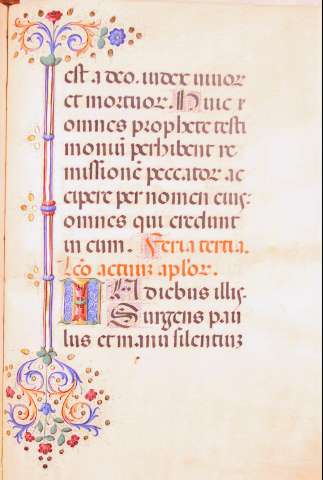 est a deo. iudex uiuor
et mortuor. Huic r
omnes prophete testi
monium perhibent re
missionē peccator ac
cipere per nomen eius.
omnes qui credunt
in eum. Feria tertia.
Lc̄o actuum aplōr.
IN diebus illis.
Surgens pau
lus et manu silentium